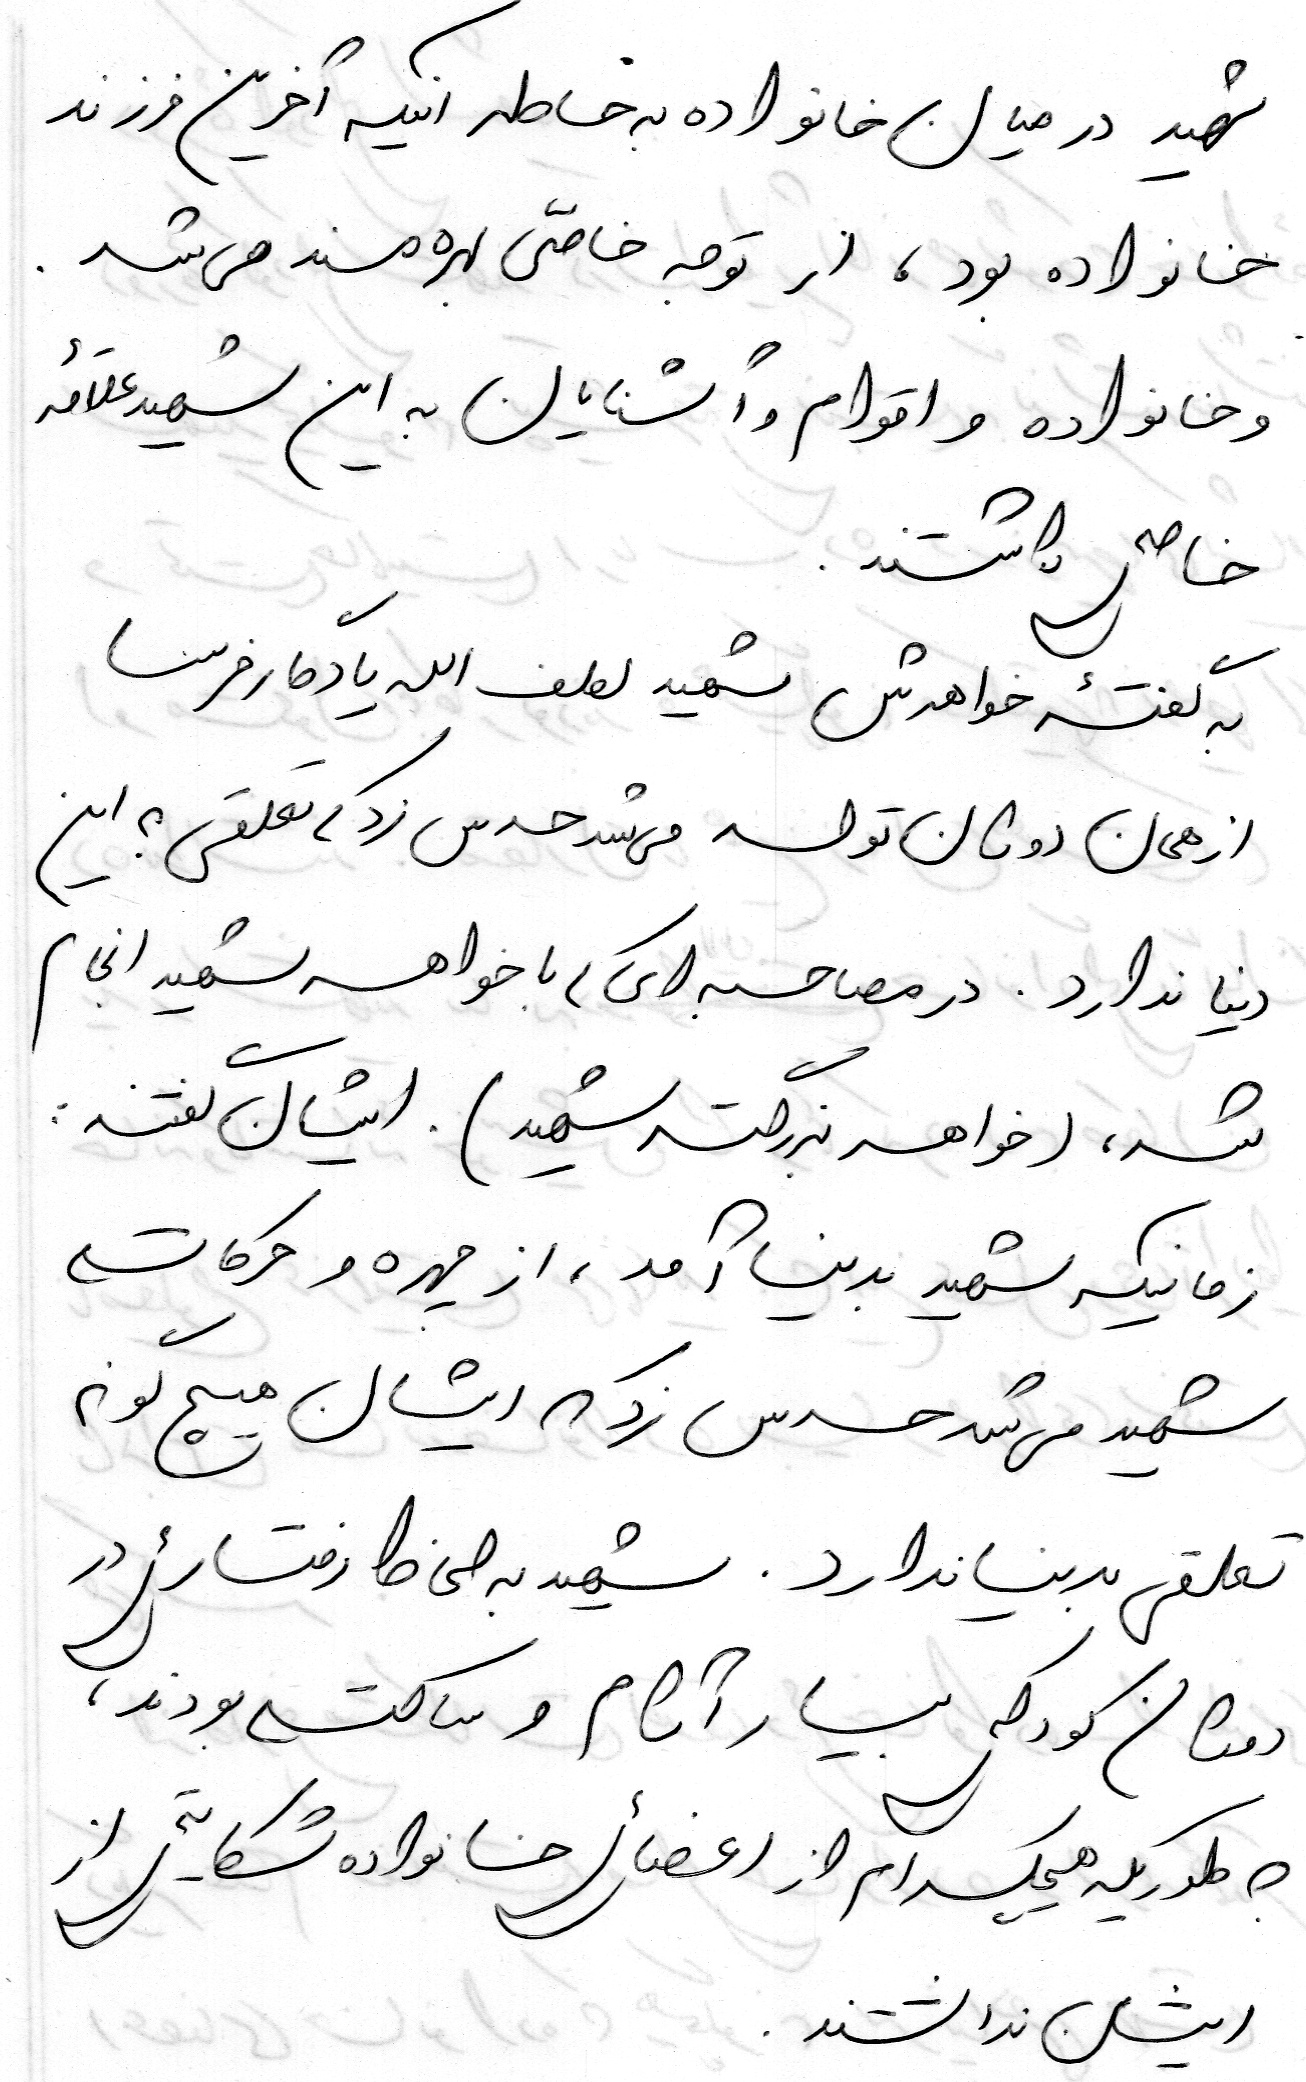 شهید در میان خانواده به خاطر اینکه آخرین فرزند
خانواده بود، از توجه خاصّی بهره مند می شد.
و خانواده و اقوام و آشنایان به این شهید علاقهٔ
خاصی داشتند.
به گفتهٔ خواهرش شهید لطف الله یادگار فرسا
از همان دوران تولد می شد حدس زد که تعلقی به این
دنیا ندارد. در مصاحبه ای که با خواهر شهید انجام
شد، (خواهر بزرگتر شهید). ایشان گفتند:
زمانیکه شهید بدنیا آمد، از چهره و حرکات
شهید می شد حدس زد که ایشان هیچ گونه
تعلقی بدنیا ندارد. شهید به لحاظ رفتاری در
دوران کودکی بسیار آرام و ساکت بودند،
به طوریکه هیچکدام از اعضای خانواده شکایتی از
ایشان نداشتند.